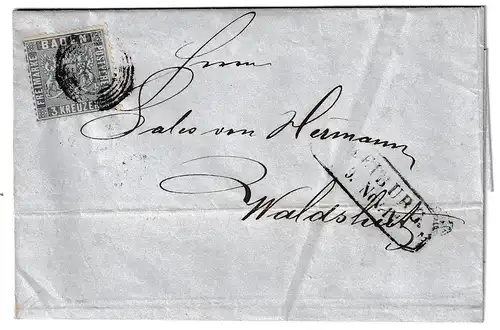 BADEN
FREIMARKE
3 KREUZER
Herrn
Sales von Hermann
Waldshut
9. Nov.